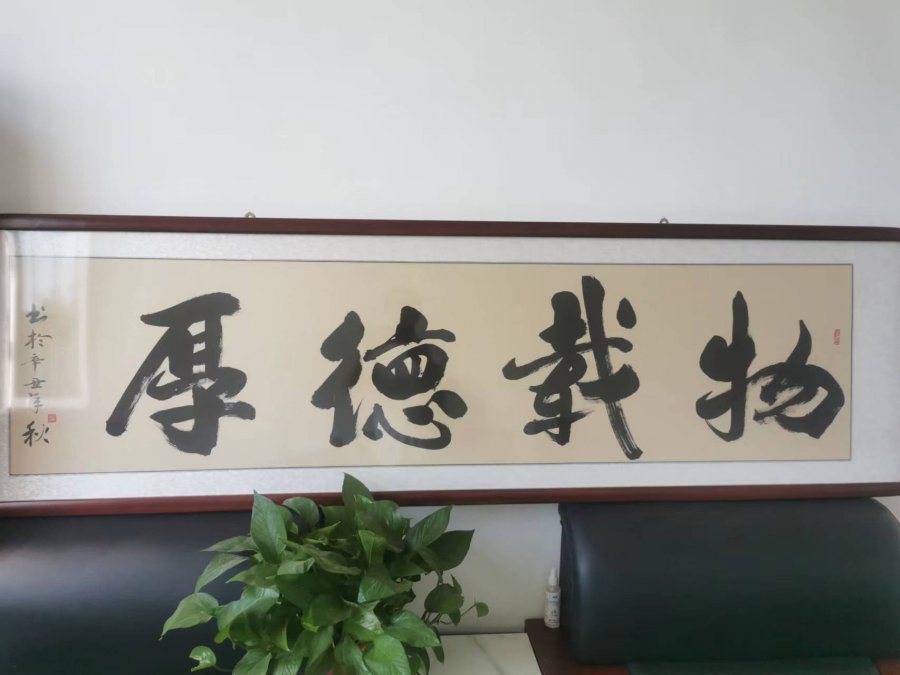 厚德載物
书於辛丑年秋